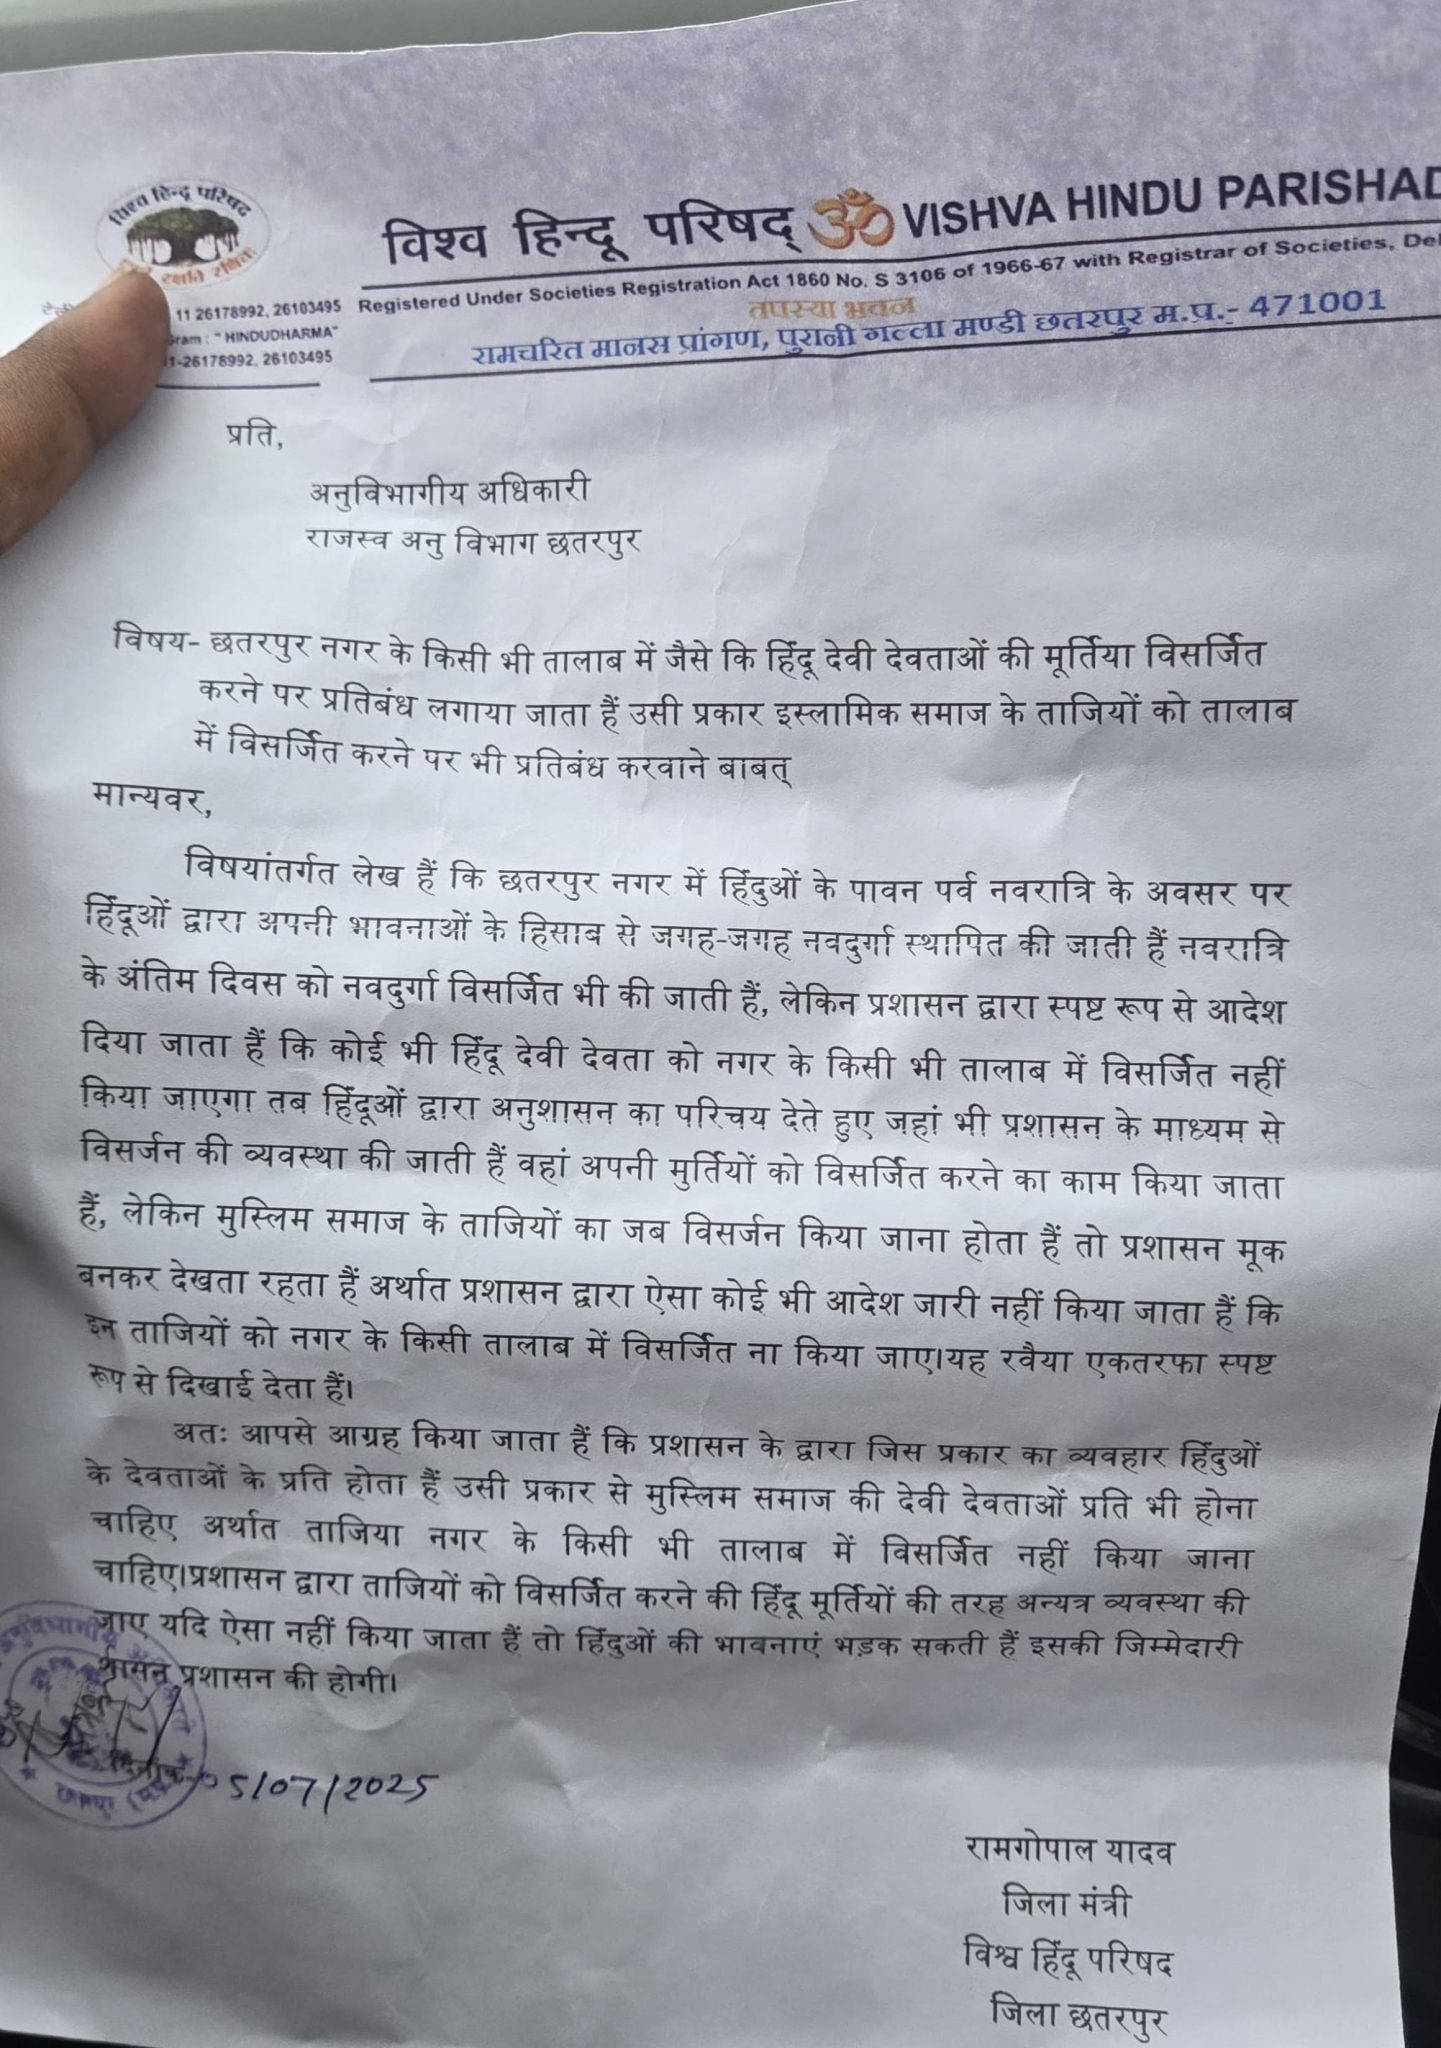 विश्व हिन्दू परिषद
रक्षति रक्षितः
विश्व हिन्दू परिषद् ॐ VISHVA HINDU PARISHAD
Registered Under Societies Registration Act 1860 No. S 3106 of 1966-67 with Registrar of Societies, Del
11 26178992, 26103495
Gram : " HINDUDHARMA"
11-26178992, 26103495
तपस्या भवन
रामचरित मानस प्रांगण, पुरानी गल्ला मण्डी छतरपुर म.प्र.- 471001
प्रति,
अनुविभागीय अधिकारी
राजस्व अनु विभाग छतरपुर
विषय- छतरपुर नगर के किसी भी तालाब में जैसे कि हिंदू देवी देवताओं की मूर्तिया विसर्जित
करने पर प्रतिबंध लगाया जाता हैं उसी प्रकार इस्लामिक समाज के ताजियों को तालाब
में विसर्जित करने पर भी प्रतिबंध करवाने बाबत्
मान्यवर,
विषयांतर्गत लेख हैं कि छतरपुर नगर में हिंदुओं के पावन पर्व नवरात्रि के अवसर पर
हिंदूओं द्वारा अपनी भावनाओं के हिसाब से जगह-जगह नवदुर्गा स्थापित की जाती हैं नवरात्रि
के अंतिम दिवस को नवदुर्गा विसर्जित भी की जाती हैं, लेकिन प्रशासन द्वारा स्पष्ट रूप से आदेश
दिया जाता हैं कि कोई भी हिंदू देवी देवता को नगर के किसी भी तालाब में विसर्जित नहीं
किया जाएगा तब हिंदूओं द्वारा अनुशासन का परिचय देते हुए जहां भी प्रशासन के माध्यम से
विसर्जन की व्यवस्था की जाती हैं वहां अपनी मुर्तियों को विसर्जित करने का काम किया जाता
हैं, लेकिन मुस्लिम समाज के ताजियों का जब विसर्जन किया जाना होता हैं तो प्रशासन मूक
बनकर देखता रहता हैं अर्थात प्रशासन द्वारा ऐसा कोई भी आदेश जारी नहीं किया जाता हैं कि
इन ताजियों को नगर के किसी तालाब में विसर्जित ना किया जाए।यह रवैया एकतरफा स्पष्ट
रूप से दिखाई देता हैं।
अतः आपसे आग्रह किया जाता हैं कि प्रशासन के द्वारा जिस प्रकार का व्यवहार हिंदुओं
के देवताओं के प्रति होता हैं उसी प्रकार से मुस्लिम समाज की देवी देवताओं प्रति भी होना
चाहिए अर्थात ताजिया नगर के किसी भी तालाब में विसर्जित नहीं किया जाना
चाहिए।प्रशासन द्वारा ताजियों को विसर्जित करने की हिंदू मूर्तियों की तरह अन्यत्र व्यवस्था की
जाए यदि ऐसा नहीं किया जाता हैं तो हिंदुओं की भावनाएं भड़क सकती हैं इसकी जिम्मेदारी
शासन प्रशासन की होगी।
दिनांक-05/07/2025
रामगोपाल यादव
जिला मंत्री
विश्व हिंदू परिषद
जिला छतरपुर